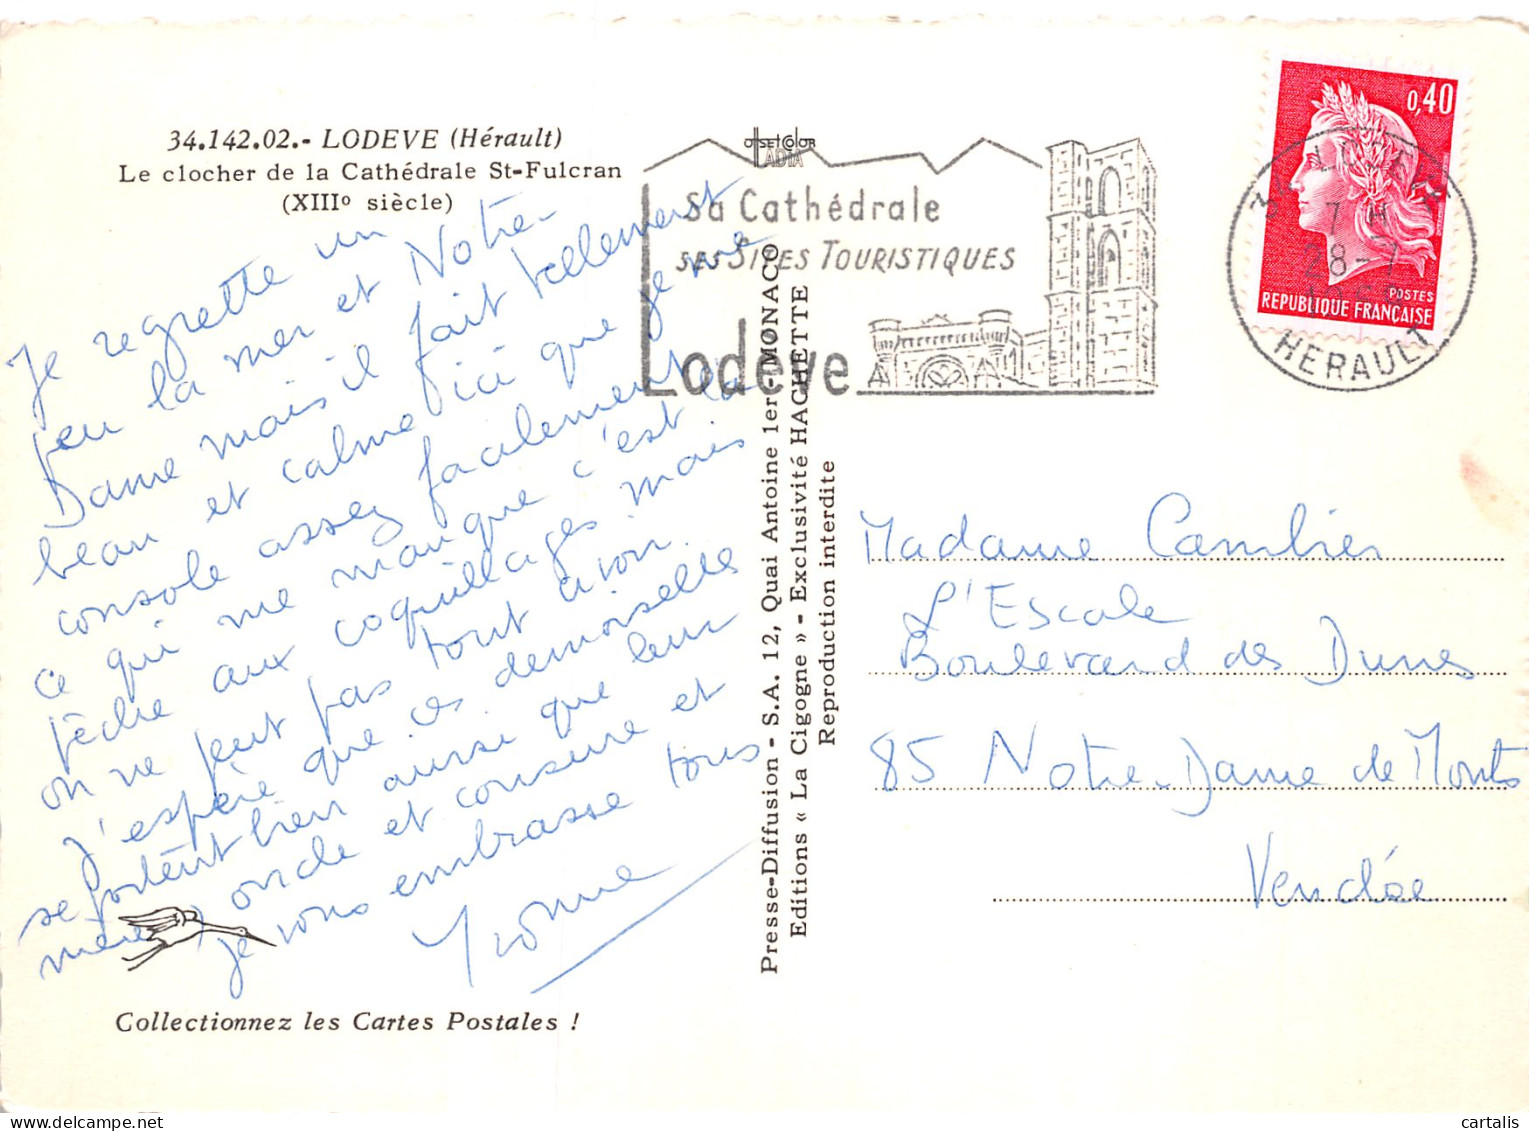 34.142.02.- LODEVE (Hérault)
Le clocher de la Cathédrale St-Fulcran
(XIIIº siècle)
Je regrette un
peu la mer et Notre-
Dame mais il fait tellement
beau et calme ici que je me
console assez facilement
ce qui me manque c'est la
pêche aux coquillages mais
on ne peut pas tout avoir.
J'espère que ces demoiselles
se portent bien ainsi que leur
mère, oncle et
je vous embrasse tous
Yvonne
Collectionnez les Cartes Postales !
OFFSETCOLOR
ADIA
Sa Cathédrale
SES SITES TOURISTIQUES
Lodève
Presse-Diffusion - S.A. 12, Quai Antoine 1er - MONACO
Editions « La Cigogne » - Exclusivité HACHETTE
Reproduction interdite
0,40
POSTES
REPUBLIQUE FRANÇAISE
34 LODEVE
7 H
28-7
HERAULT
Madame Cambier
L'Escale
Boulevard des Dunes
85 Notre-Dame de Monts
Vendée
cartalis